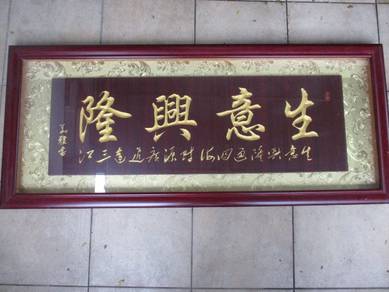 生意興隆
生意興隆通四海財源廣進達三江